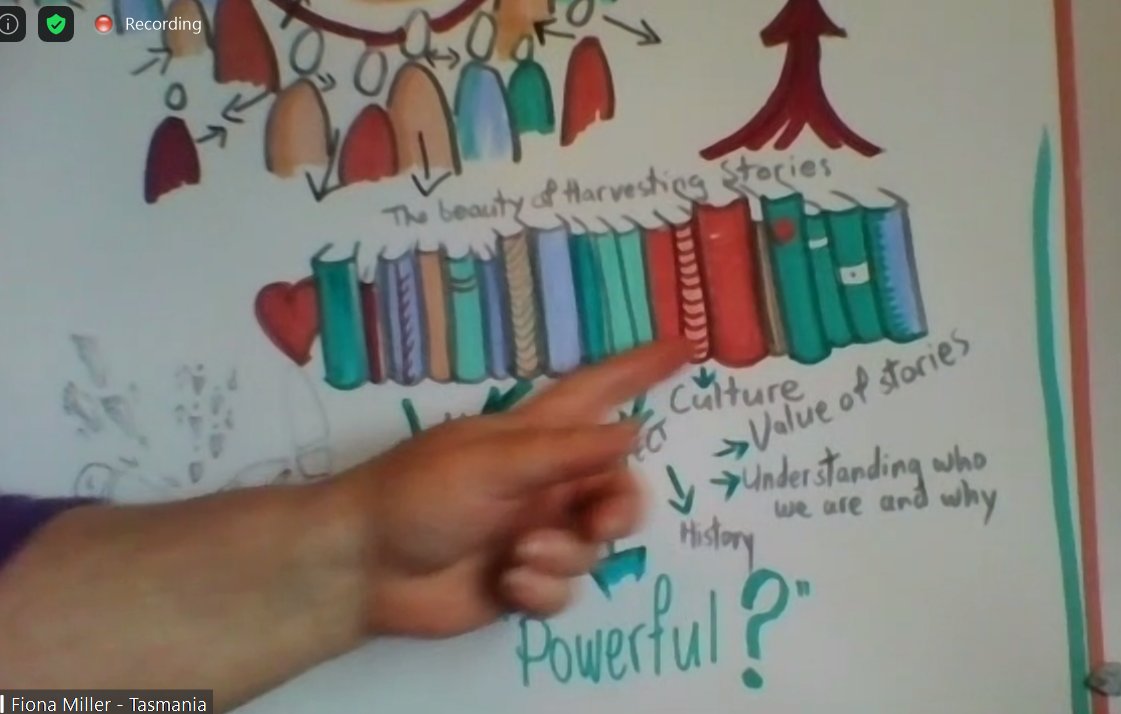 Recording
The beauty of Harvesting Stories
Culture
Value of stories
Understanding who
we are and why
History
"Powerful?"
Fiona Miller - Tasmania